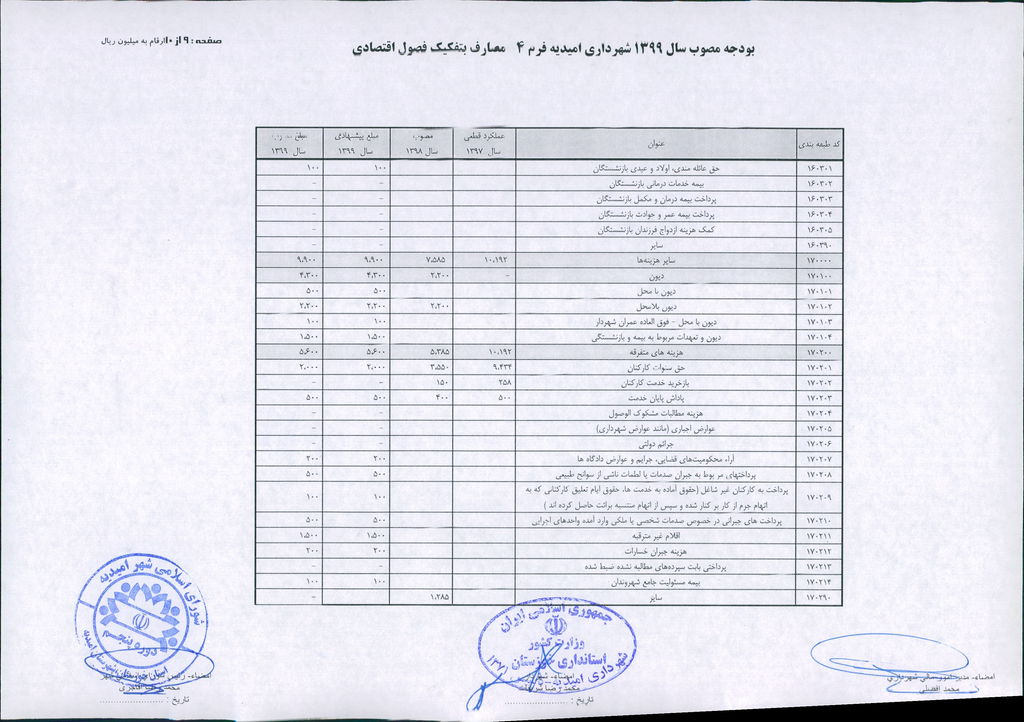 بودجه مصوب سال ۱۳۹۹ شهرداری امیدیه فرم ۴ مصارف بتفکیک فصول اقتصادی
صفحه : ۹ از ۱۰ ارقام به میلیون ریال
کد طبقه بندی عنوان عملکرد قطعی سال ۱۳۹۷ مصوب سال ۱۳۹۸ مبلغ پیشنهادی سال ۱۳۹۹ مبلغ سال ۱۳۹۹
۱۶۰۳۰۱ حق عائله مندی، اولاد و عیدی بازنشستگان ۱۰۰ ۱۰۰
۱۶۰۳۰۲ بیمه خدمات درمانی بازنشستگان - -
۱۶۰۳۰۳ پرداخت بیمه درمان و مکمل بازنشستگان - -
۱۶۰۳۰۴ پرداخت بیمه عمر و حوادث بازنشستگان - -
۱۶۰۳۰۵ کمک هزینه ازدواج فرزندان بازنشستگان - -
۱۶۰۳۹۰ سایر - -
۱۷۰۰۰۰ سایر هزینه‌ها ۱۰،۱۹۲ ۷،۵۸۵ ۹،۹۰۰ ۹،۹۰۰
۱۷۰۱۰۰ دیون - ۲،۲۰۰ ۴،۳۰۰ ۴،۳۰۰
۱۷۰۱۰۱ دیون با محل ۵۰۰ ۵۰۰
۱۷۰۱۰۲ دیون بلامحل ۲،۲۰۰ ۲،۲۰۰ ۲،۲۰۰
۱۷۰۱۰۳ دیون با محل - فوق العاده عمران شهردار ۱۰۰ ۱۰۰
۱۷۰۱۰۴ دیون و تعهدات مربوط به بیمه و بازنشستگی ۱،۵۰۰ ۱،۵۰۰
۱۷۰۲۰۰ هزینه های متفرقه ۱۰،۱۹۲ ۵،۳۸۵ ۵،۶۰۰ ۵،۶۰۰
۱۷۰۲۰۱ حق سنوات کارکنان ۹،۴۳۴ ۳،۵۵۰ ۲،۰۰۰ ۲،۰۰۰
۱۷۰۲۰۲ بازخرید خدمت کارکنان ۲۵۸ ۱۵۰ - -
۱۷۰۲۰۳ پاداش پایان خدمت ۵۰۰ ۴۰۰ ۵۰۰ ۵۰۰
۱۷۰۲۰۴ هزینه مطالبات مشکوک الوصول - -
۱۷۰۲۰۵ عوارض اجباری (مانند عوارض شهرداری) - -
۱۷۰۲۰۶ جرائم دولتی - -
۱۷۰۲۰۷ آراء محکومیت‌های قضایی، جرایم و عوارض دادگاه ها ۲۰۰ ۲۰۰
۱۷۰۲۰۸ پرداختهای مربوط به جبران صدمات یا لطمات ناشی از سوانح طبیعی ۵۰۰ ۵۰۰
۱۷۰۲۰۹ پرداخت به کارکنان غیر شاغل (حقوق آماده به خدمت ها، حقوق ایام تعلیق کارکنانی که به ۱۰۰ ۱۰۰
اتهام جرم از کار بر کنار شده و سپس از اتهام منتسبه برائت حاصل کرده اند )
۱۷۰۲۱۰ پرداخت های جبرانی در خصوص صدمات شخصی یا ملکی وارد آمده واحدهای اجرایی ۵۰۰ ۵۰۰
۱۷۰۲۱۱ اقلام غیر مترقبه ۱،۵۰۰ ۱،۵۰۰
۱۷۰۲۱۲ هزینه جبران خسارات ۲۰۰ ۲۰۰
۱۷۰۲۱۳ پرداختی بابت سپرده‌های مطالبه نشده ضبط شده - -
۱۷۰۲۱۴ بیمه مسئولیت جامع شهروندان ۱۰۰ ۱۰۰
۱۷۰۲۹۰ سایر ۱،۲۸۵ - -
شورای اسلامی شهر امیدیه
دوره پنجم
جمهوری اسلامی ایران
وزارت کشور
استانداری خوزستان
شهرداری امیدیه
امضاء- مدیر امور مالی شهرداری
محمد افضلی
امضاء- شهردار
محمد رضا
تاریخ : ......................
امضاء- رئیس شورای اسلامی شهر
تاریخ : ......................